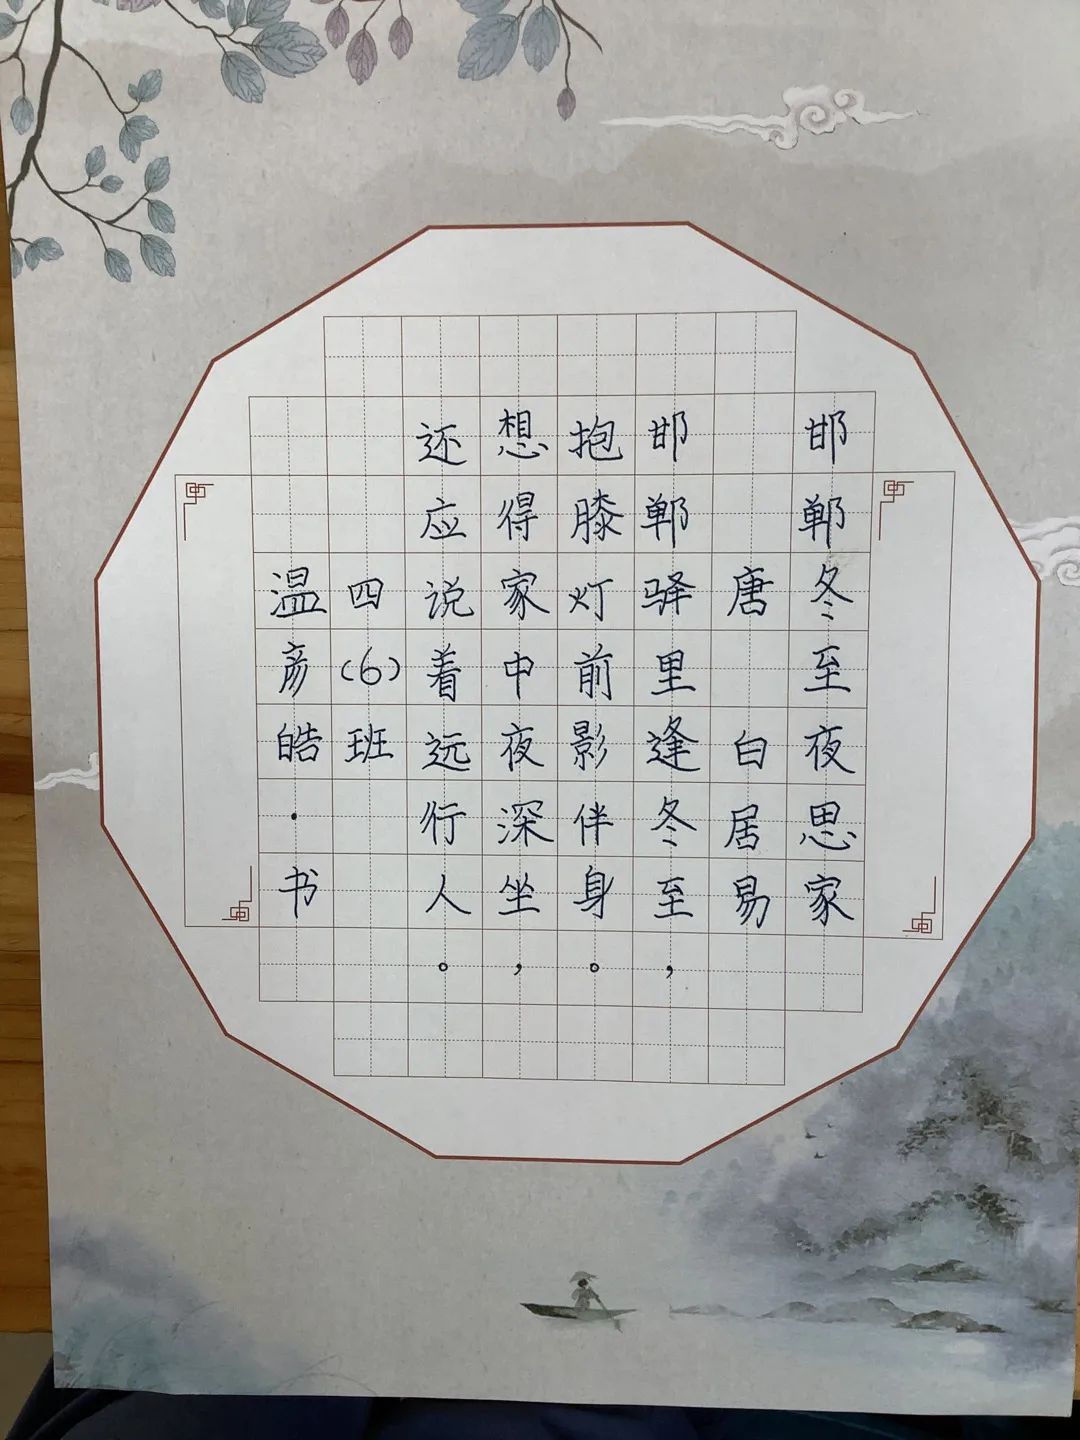 邯郸冬至夜思家
唐 白居易
邯郸驿里逢冬至，
抱膝灯前影伴身。
想得家中夜深坐，
还应说着远行人。
四(6)班
温彦皓·书